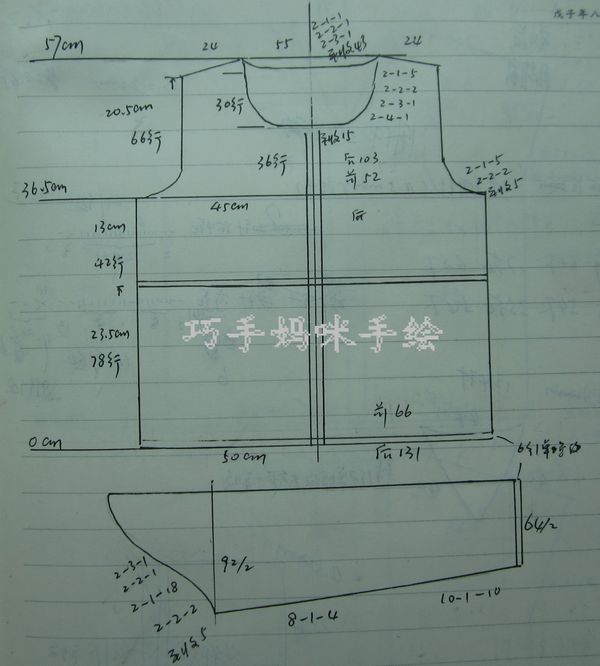 戊子年八
57cm
24
55
24
2-1-1
2-2-1
2-3-1
平收43
20.5cm
66行
30行
2-1-5
2-2-2
2-3-1
2-4-1
平收15
36行
后103
前52
2-1-5
2-2-2
平收5
36.5cm
45cm
后
13cm
42行
23.5cm
78行
巧手妈咪手绘
前66
0cm
50cm
后131
2-3-1
2-2-1
2-1-18
2-2-2
平收5
92/2
64/2
8-1-4
10-1-10